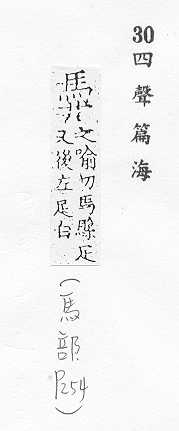 30四聲篇海
之喻切馬縣足
又後左足白
(馬部
P254)